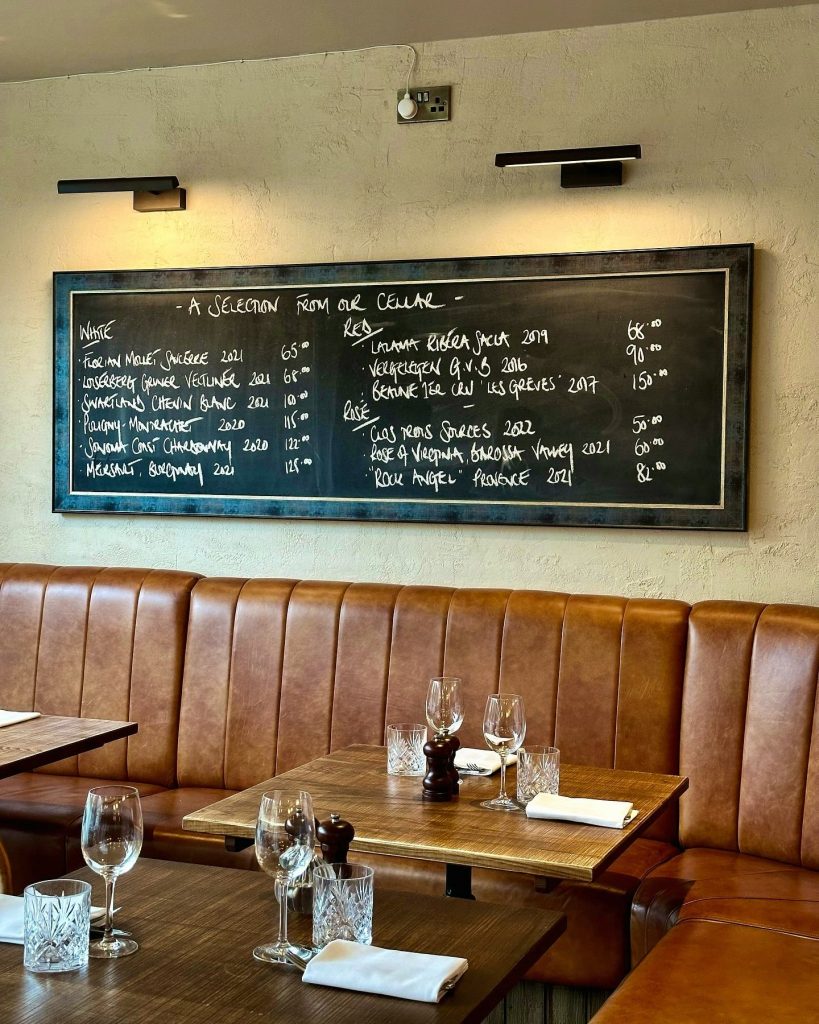 - A SELECTION FROM OUR CELLAR -
WHITE
· FLORIAN MOLLET SANCERRE 2021 65.00
· LOISERBERG GRUNER VETLINER 2021 68.00
· SWARTLAND CHENIN BLANC 2021 110.00
· PULIGNY-MONTRACHET 2020 115.00
· SONOMA COAST CHARDONNAY 2020 122.00
· MEURSAULT, BURGUNDY 2021 125.00
RED
· LALAMA RIBERA SACRA 2019 68.00
· VERGELEGEN G.V.B 2016 90.00
· BEAUNE 1ER CRU 'LES GRÈVES' 2017 150.00
ROSÉ
· CLOS TROIS SOURCES 2022 50.00
· ROSE OF VIRGINIA, BAROSSA VALLEY 2021 60.00
· "ROCK ANGEL" PROVENCE 2021 82.00